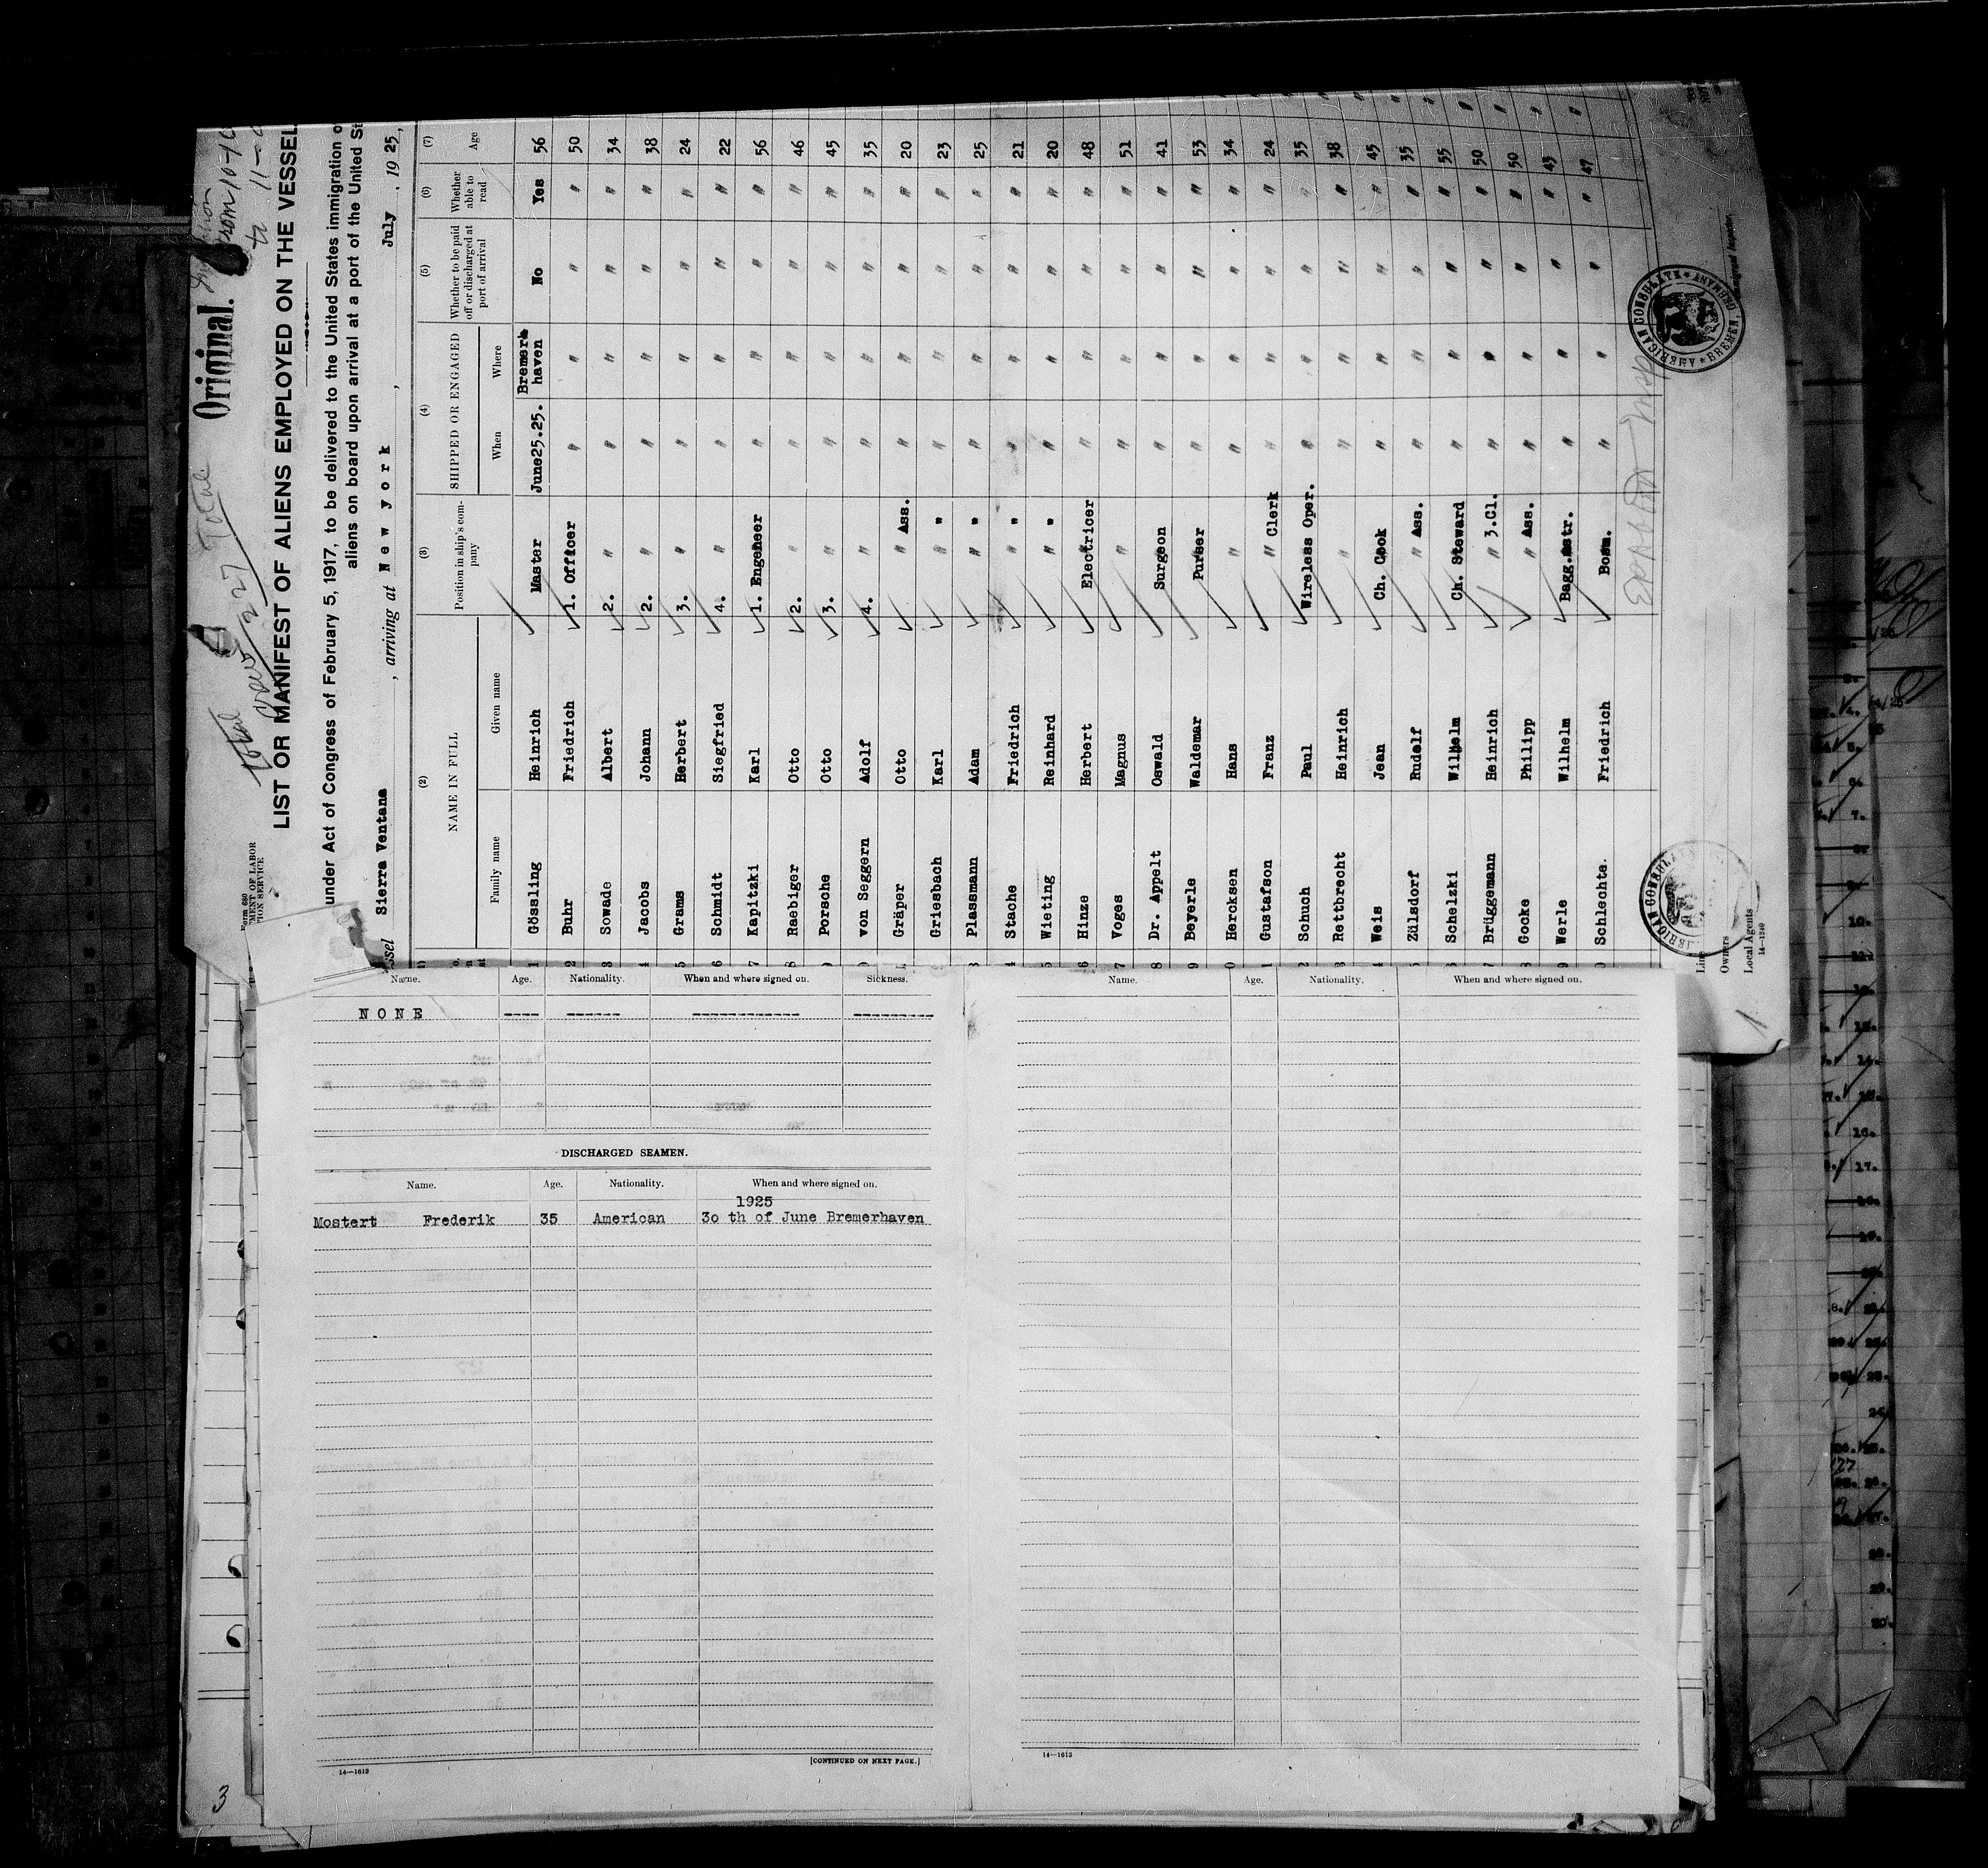 Original.
Total crew 227 Total
LIST OR MANIFEST OF ALIENS EMPLOYED ON THE VESSEL
under Act of Congress of February 5, 1917, to be delivered to the United States immigration
aliens on board upon arrival at a port of the United St
Sierra Ventana , arriving at New york , July , 1925,
(2) (3) (4) (5) (6) (7)
NAME IN FULL Position in ship's company SHIPPED OR ENGAGED Whether to be paid off or discharged at port of arrival Whether able to read Age
Family name Given name When Where
1 Gössling Heinrich Master June25.25. Bremerhaven No Yes 56
2 Buhr Friedrich 1. Officer " " " " 50
3 Sowade Albert 2. " " " " " 34
4 Jacobs Johann 2. " " " " " 38
5 Grams Herbert 3. " " " " " 24
6 Schmidt Siegfried 4. " " " " " 22
7 Kapitzki Karl 1. Engeneer " " " " 56
8 Raebiger Otto 2. " " " " " 46
9 Porsche Otto 3. " " " " " 45
0 von Seggern Adolf 4. " " " " " 35
1 Gräper Otto " Ass. " " " " 20
Griesbach Karl " " " " " " 23
3 Plassmann Adam " " " " " " 25
4 Stache Friedrich " " " " " " 21
5 Wieting Reinhard " " " " " " 20
6 Hinze Herbert Electricer " " " " 48
7 Voges Magnus " " " " " 51
8 Dr. Appelt Oswald Surgeon " " " " 41
9 Beyerle Waldemar Purser " " " " 53
0 Hercksen Hans " " " " " 34
1 Gustafson Franz " Clerk " " " " 24
2 Schuch Paul Wireless Oper. " " " " 35
3 Rettbrecht Heinrich " " " " " 38
4 Weis Jean Ch. Cook " " " " 45
5 Zülsdorf Rudolf " Ass. " " " " 35
6 Schelzki Wilhelm Ch. Steward " " " " 55
7 Brüggemann Heinrich " 3.Cl. " " " " 50
8 Gocke Philipp " Ass. " " " " 50
9 Werle Wilhelm Bagg.mstr. " " " " 43
0 Schlechte. Friedrich Bosm. " " " " 47
AMERICAN CONSULATE BREMEN, GERMANY
Line
Owners
Local Agents
14—1240
1
Name. Age. Nationality. When and where signed on. Sickness.
NONE ---- ------ ------------ ---------
DISCHARGED SEAMEN.
Name. Age. Nationality. When and where signed on.
1925
Mostert Frederik 35 American 3o th of June Bremerhaven
[CONTINUED ON NEXT PAGE.]
14—1613
Name. Age. Nationality. When and where signed on.
14—1613
3